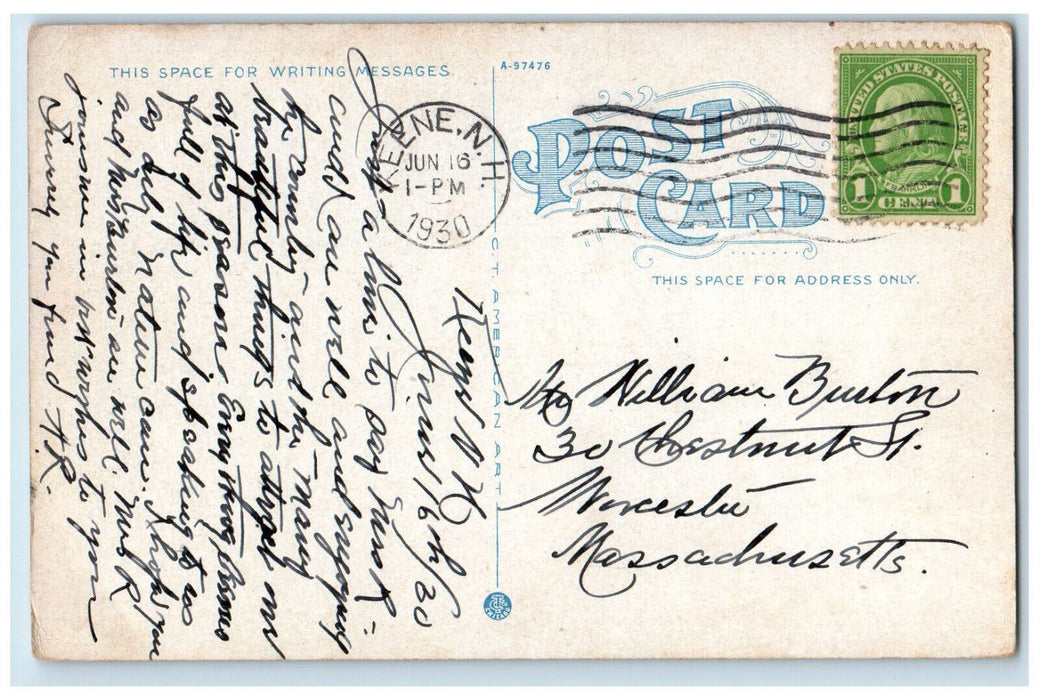 THIS SPACE FOR WRITING MESSAGES.
A-97476
POST
CARD
THIS SPACE FOR ADDRESS ONLY.
KEENE, N.H.
JUN 16
1-PM
1930
UNITED STATES POSTAGE
FRANKLIN
1 CENT 1
C.T. AMERICAN ART
CHICAGO
Keene N H
June 16th/30
Just a line to say Mrs R.
and I are well and enjoying
the country and the many
beautiful things to attract one
at this season. Everything seems
full of life and speaking to us
as only nature can. I hope you
and Mrs Burton are well. Mrs R
joins me in best wishes to you
Sincerely your friend H.R.
Mr William Burton
30 Chestnut St.
Worcester
Massachusetts.